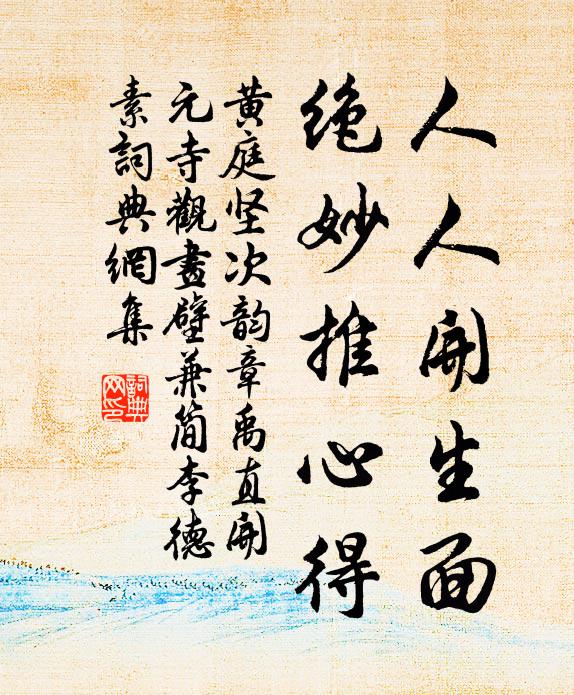 人人開生面
绝妙推心得
黄庭坚次韵章禹直開
元寺觀畫壁兼简李德
素詞典網集
詞典
网印